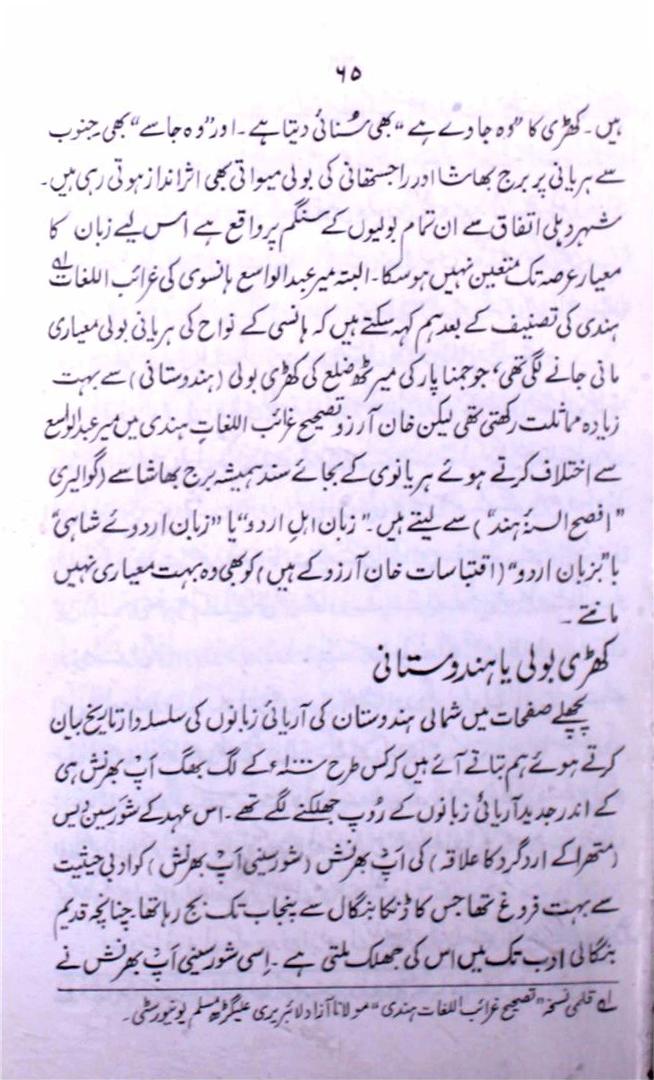 ۶۵
ہیں۔ کھڑی کا "وہ جا دے ہے" بھی سُنائی دیتا ہے۔ اور "وہ جا سے" بھی۔ جنوب
سے ہریانی پر برج بھاشا اور راجستھانی کی بولی میواتی بھی اثر انداز ہوتی رہی ہیں۔
شہر دہلی اتفاق سے ان تمام بولیوں کے سنگم پر واقع ہے اس لیے زبان کا
معیار عرصہ تک متعین نہیں ہو سکا۔ البتہ میر عبدالواسع ہانسوی کی غرائب اللغات لہ
ہندی کی تصنیف کے بعد ہم کہہ سکتے ہیں کہ ہانسی کے نواح کی ہریانی بولی معیاری
مانی جانے لگی تھی، جو جمنا پار کی میرٹھ ضلع کی کھڑی بولی (ہندوستانی) سے بہت
زیادہ مماثلت رکھتی تھی لیکن خان آرزو تصحیح غرائب اللغات ہندی میں میر عبدالواسع
سے اختلاف کرتے ہوئے ہریانوی کے بجائے سند ہمیشہ برج بھاشا سے (گوالیری
"افصح السنۂ ہند") سے لیتے ہیں۔ "زبان اہلِ اردو" یا "زبان اردوئے شاہی"
یا "بزبان اردو" (اقتباسات خان آرزو کے ہیں) کو بھی وہ بہت معیاری نہیں
مانتے۔
کھڑی بولی یا ہندوستانی
پچھلے صفحات میں شمالی ہندوستان کی آریائی زبانوں کی سلسلہ وار تاریخ بیان
کرتے ہوئے ہم بتاتے آئے ہیں کہ کس طرح ۱۰۰۰ء کے لگ بھگ اَپ بھرنش ہی
کے اندر جدید آریائی زبانوں کے رُوپ جھلکنے لگے تھے۔ اس عہد کے شورسین میں
(متھرا کے اردگرد کا علاقہ) کی اَپ بھرنش (شورسینی اَپ بھرنش) کو ادبی حیثیت
سے بہت فروغ تھا جس کا ڈنکا بنگال سے پنجاب تک بج رہا تھا۔ چنانچہ قدیم
بنگالی ادب تک میں اس کی جھلک ملتی ہے۔ اِسی شورسینی اَپ بھرنش نے
لہ قلمی نسخہ "تصحیح غرائب اللغات ہندی" مولانا آزاد لائبریری علیگڑھ مسلم یونیورسٹی۔